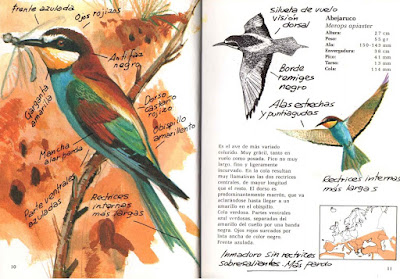 frente azulada
Ojos rojizos
Antifaz
negro
Garganta
amarilla
Dorso
castaño
rojizo
Obispillo
amarillento
Mancha
alar parda
Parte ventrales
azuladas
Rectrices
internas
más largas
10
Silueta de vuelo
visión
dorsal
Abejaruco
Merops apiaster
Altura: 27 cm
Peso: 55 gr
Ala: mm
Envergadura: 38 cm
Pico: 41 mm
Tarso: 12 mm
Cola: 114 mm
Borde
remiges
negro
Alas estrechas
y puntiagudas
Es el ave de más variado
colorido. Muy grácil, tanto en
vuelo como posada. Pico muy
largo, fino y ligeramente
incurvado. En la cola resultan
muy llamativas las dos rectrices
centrales, de mayor longitud
que el resto. El dorso es
predominantemente marrón, que va
aclarándose hasta llegar a un
amarillo en el obispillo.
Cola verdosa. Partes ventrales
azul verdosas, separadas del
amarillo del cuello por una banda
negra. Ojos rojos surcados por
una ancha de color negro.
Frente azulada.
Rectrices internas
más largas
Inmaduro sin rectrices
sobresalientes. Más pardo
11